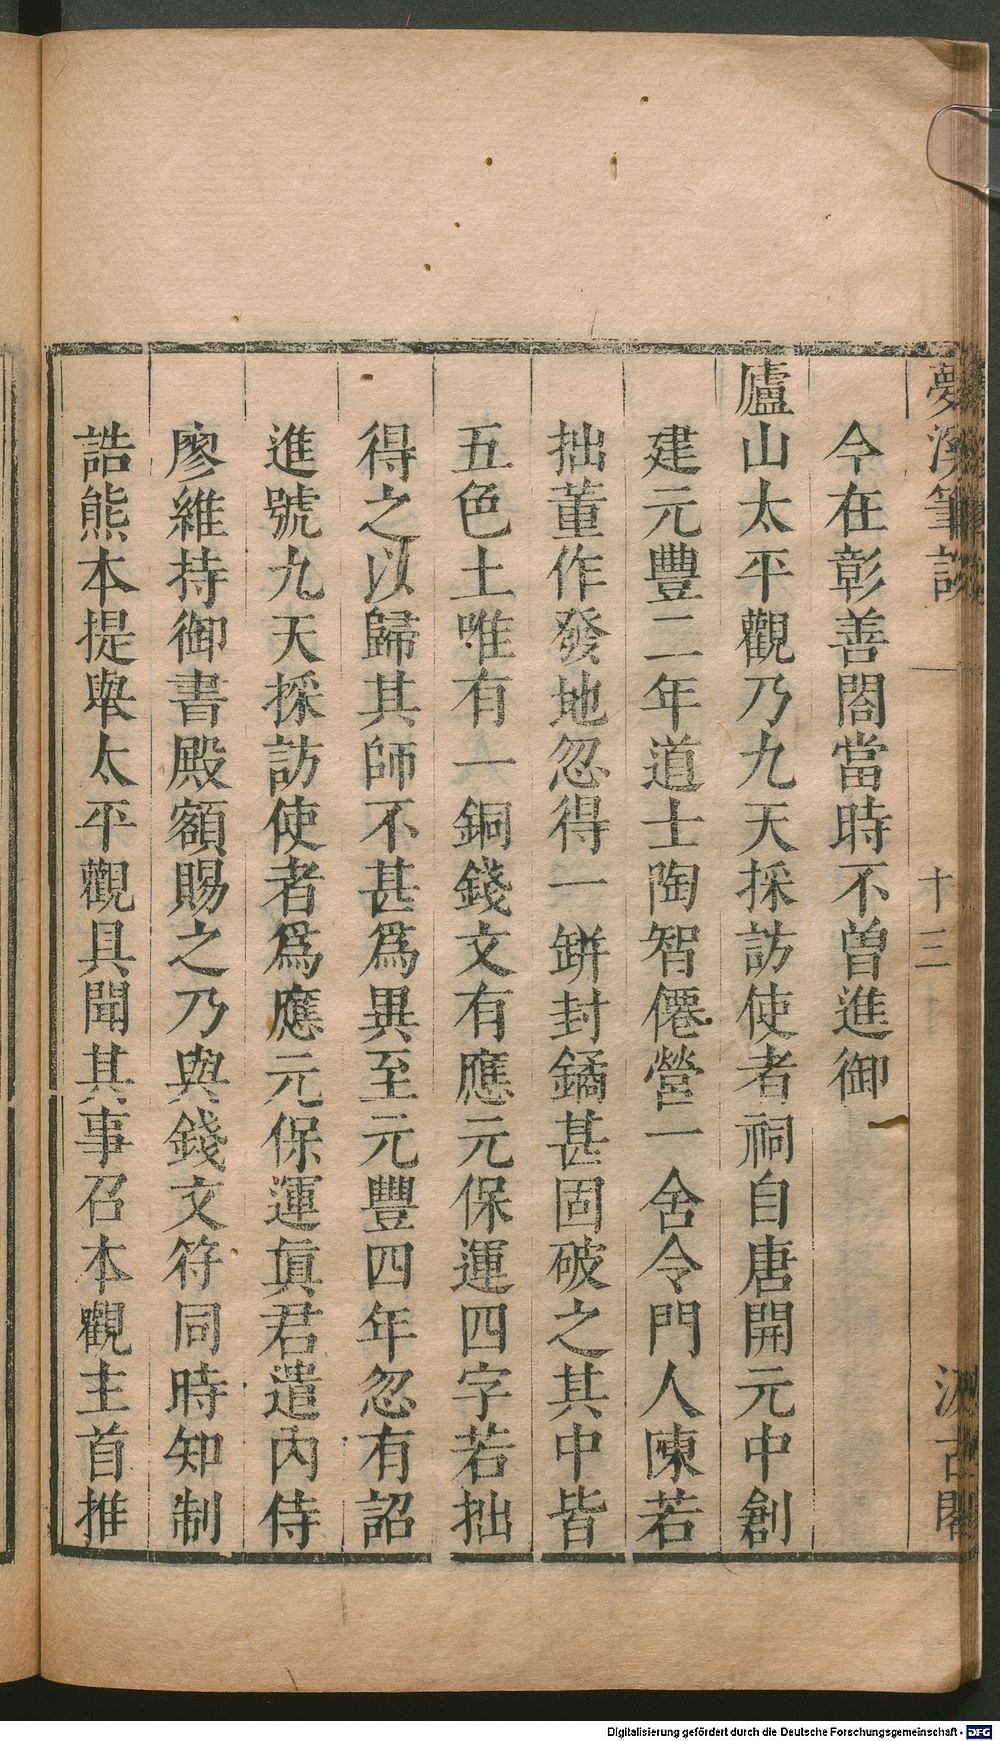 夢溪筆談
十三
汲古閣
今在彰善閤當時不曾進御
廬山太平觀乃九天採訪使者祠自唐開元中創
建元豐二年道士陶智僊營一舍令門人陳若
拙董作發地忽得一缾封鐍甚固破之其中皆
五色土唯有一銅錢文有應元保運四字若拙
得之以歸其師不甚爲異至元豐四年忽有詔
進號九天採訪使者爲應元保運眞君遣內侍
廖維持御書殿額賜之乃與錢文符同時知制
誥熊本提舉太平觀具聞其事召本觀主首推
Digitalisierung gefördert durch die Deutsche Forschungsgemeinschaft - DFG